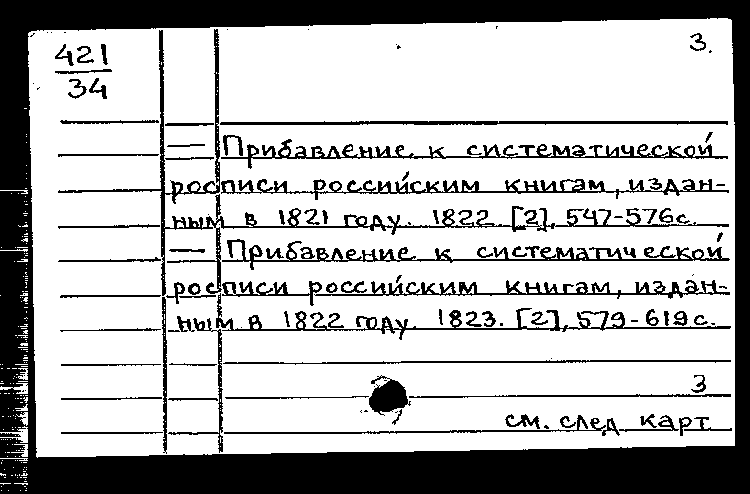 421
34
3.
— Прибавление к систематической
росписи российским книгам, издан-
ным в 1821 году. 1822. [2], 547-576с.
— Прибавление к систематической
росписи российским книгам, издан-
ным в 1822 году. 1823. [2], 579-619с.
3
см. след карт